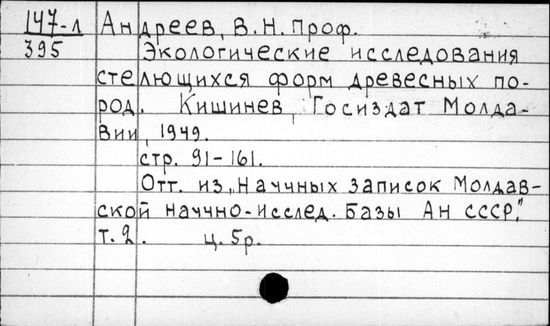 147-л Андреев, В.Н. Проф.
395 Экологические исследования
стелющихся форм древесных по-
род. Кишинев, Госиздат Молда-
вии, 1949.
стр. 91-161.
Отт. из „Научных записок Молдав-
ской научно-исслед. Базы Ан СССР,"
т. 2. ц. 5р.